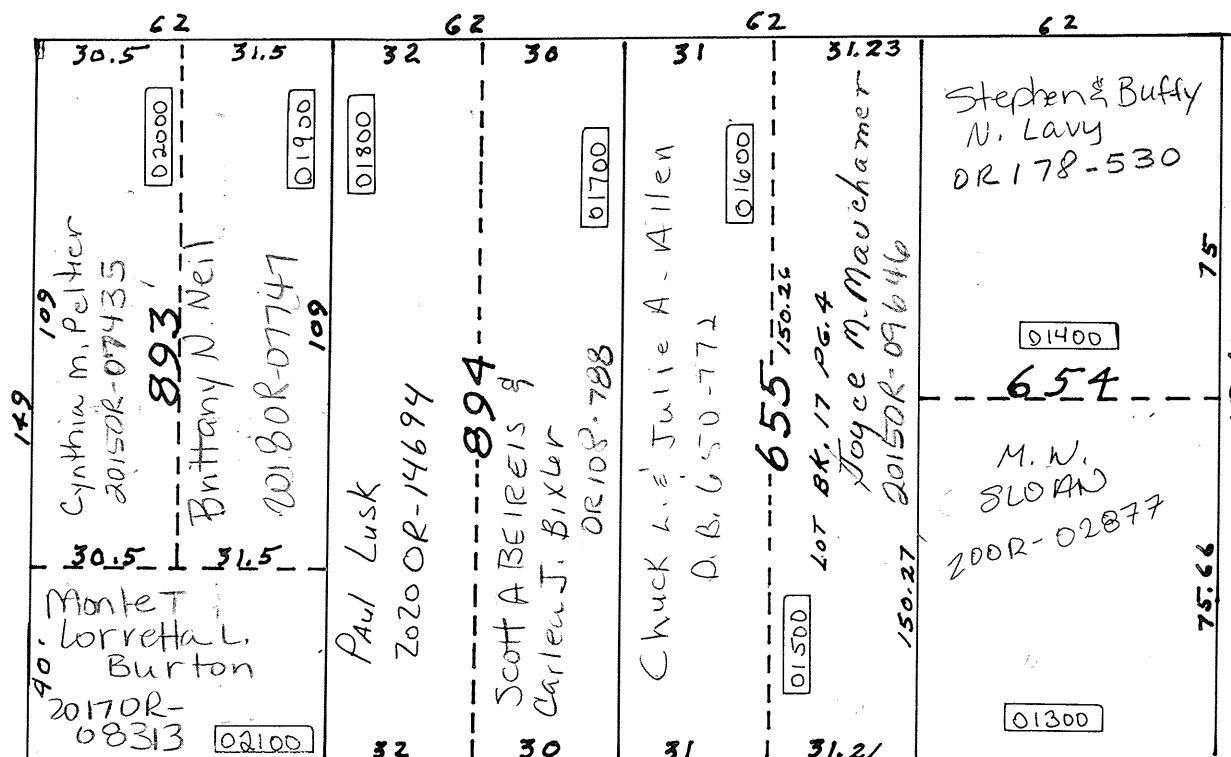 62
62
62
62
30.5
31.5
32
30
31
31.23
02000
01900
01800
01700
01600
Cynthia M. Peltier
20150R-07435
893
Brittany N. Neil
20180R-07747
109
109
149
30.5
31.5
Monte T
Lorretta L.
Burton
20170R-
08313
40.
02100
Paul Lusk
2020 OR-14694
894
Scott A BEIREIS &
Carlen J. Bixler
OR108-788
32
30
Chuck L. & Julie A. Allen
D.B. 650-772
655
150.26
LOT BK. 17 PG. 4
Joyce M.
20150R-09646
150.27
01500
31
31.21
Stephen & Buffy
N. Lavy
OR178-530
75
01400
654
M.W.
SLOAN
200R-02877
75.66
01300